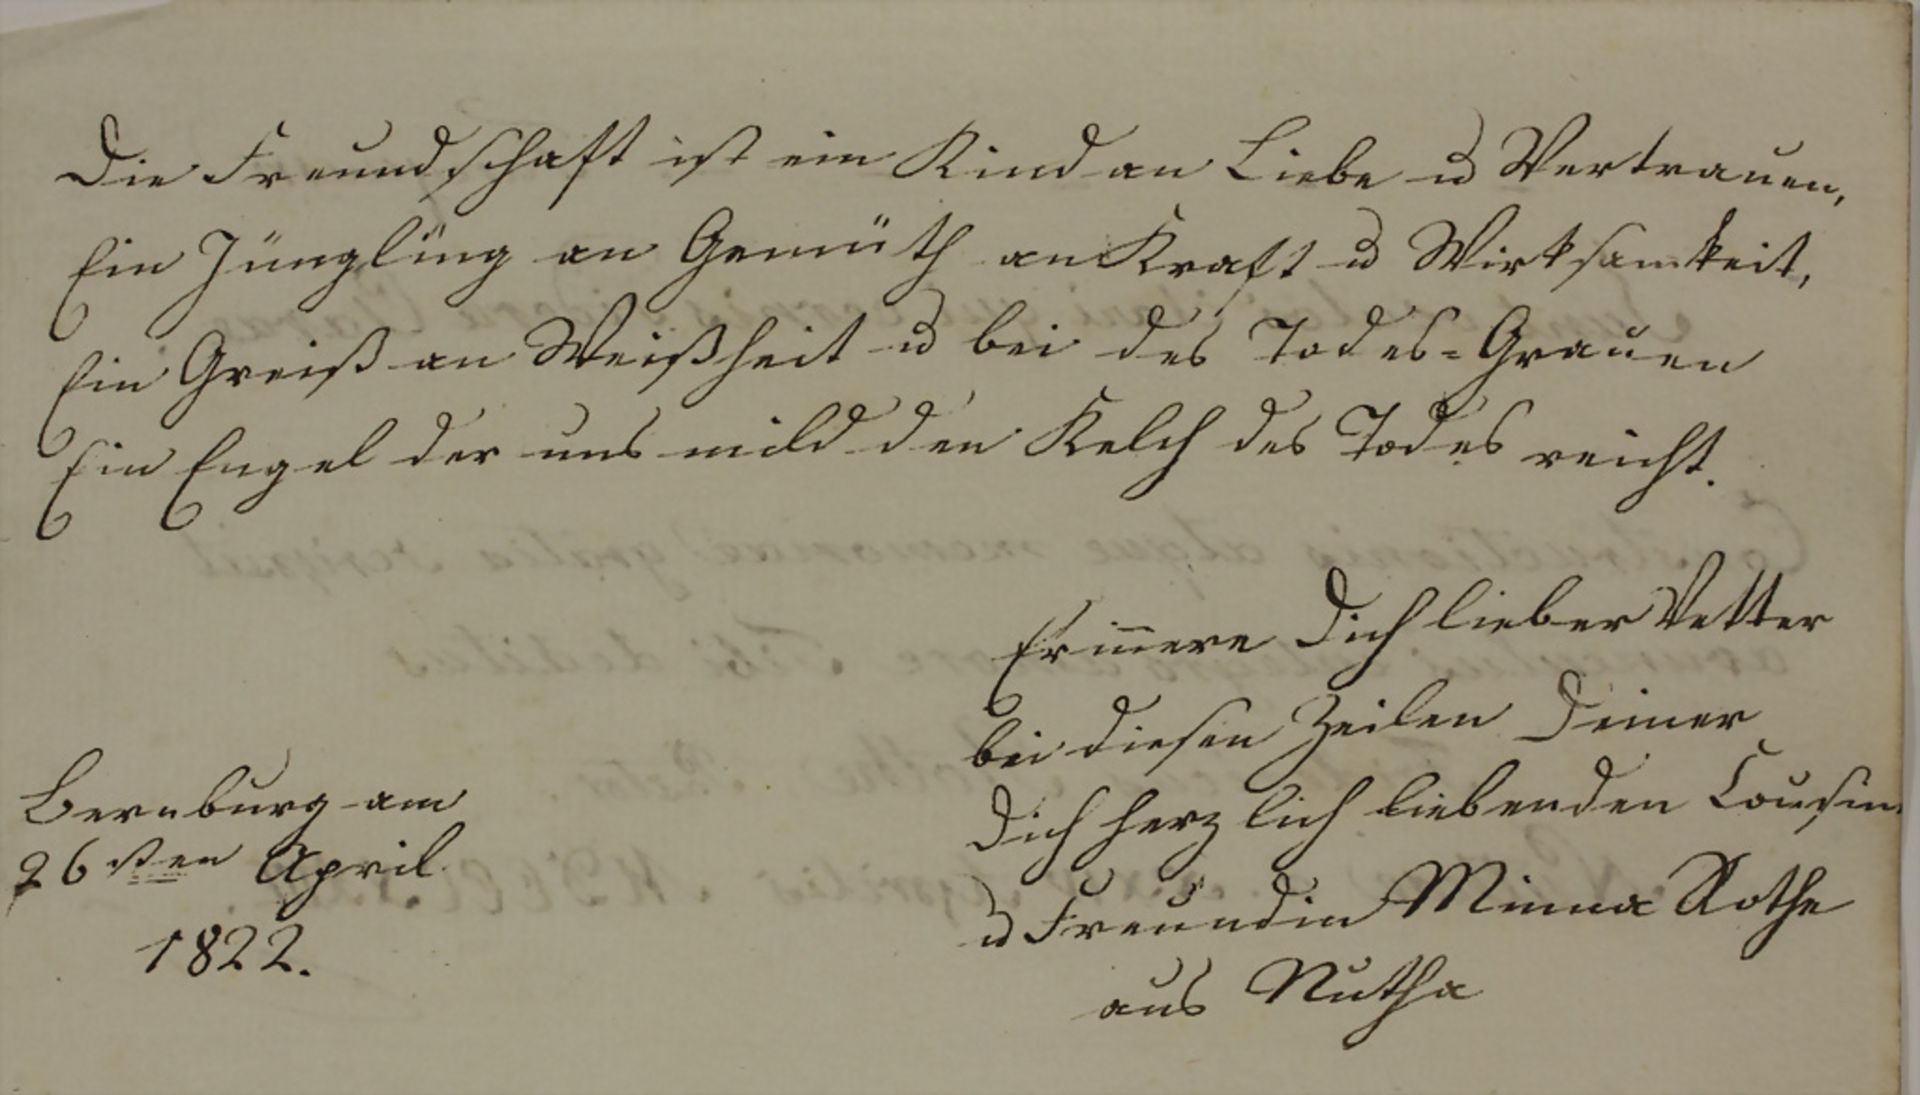 Die Freundschaft ist ein Kind an Liebe u Vertrauen,
Ein Jüngling an Gemüth an Kraft u Wirksamkeit,
Ein Greiß an Weißheit u bei des Todes-Grauen
Ein Engel der uns mild den Kelch des Todes reicht.
Erinnere Dich lieber Vetter
bei diesen Zeilen Deiner
Dich herzlich liebenden Cousin
u Freundin Minna Rothe
aus Nutha
Bernburg am
26sten April
1822.